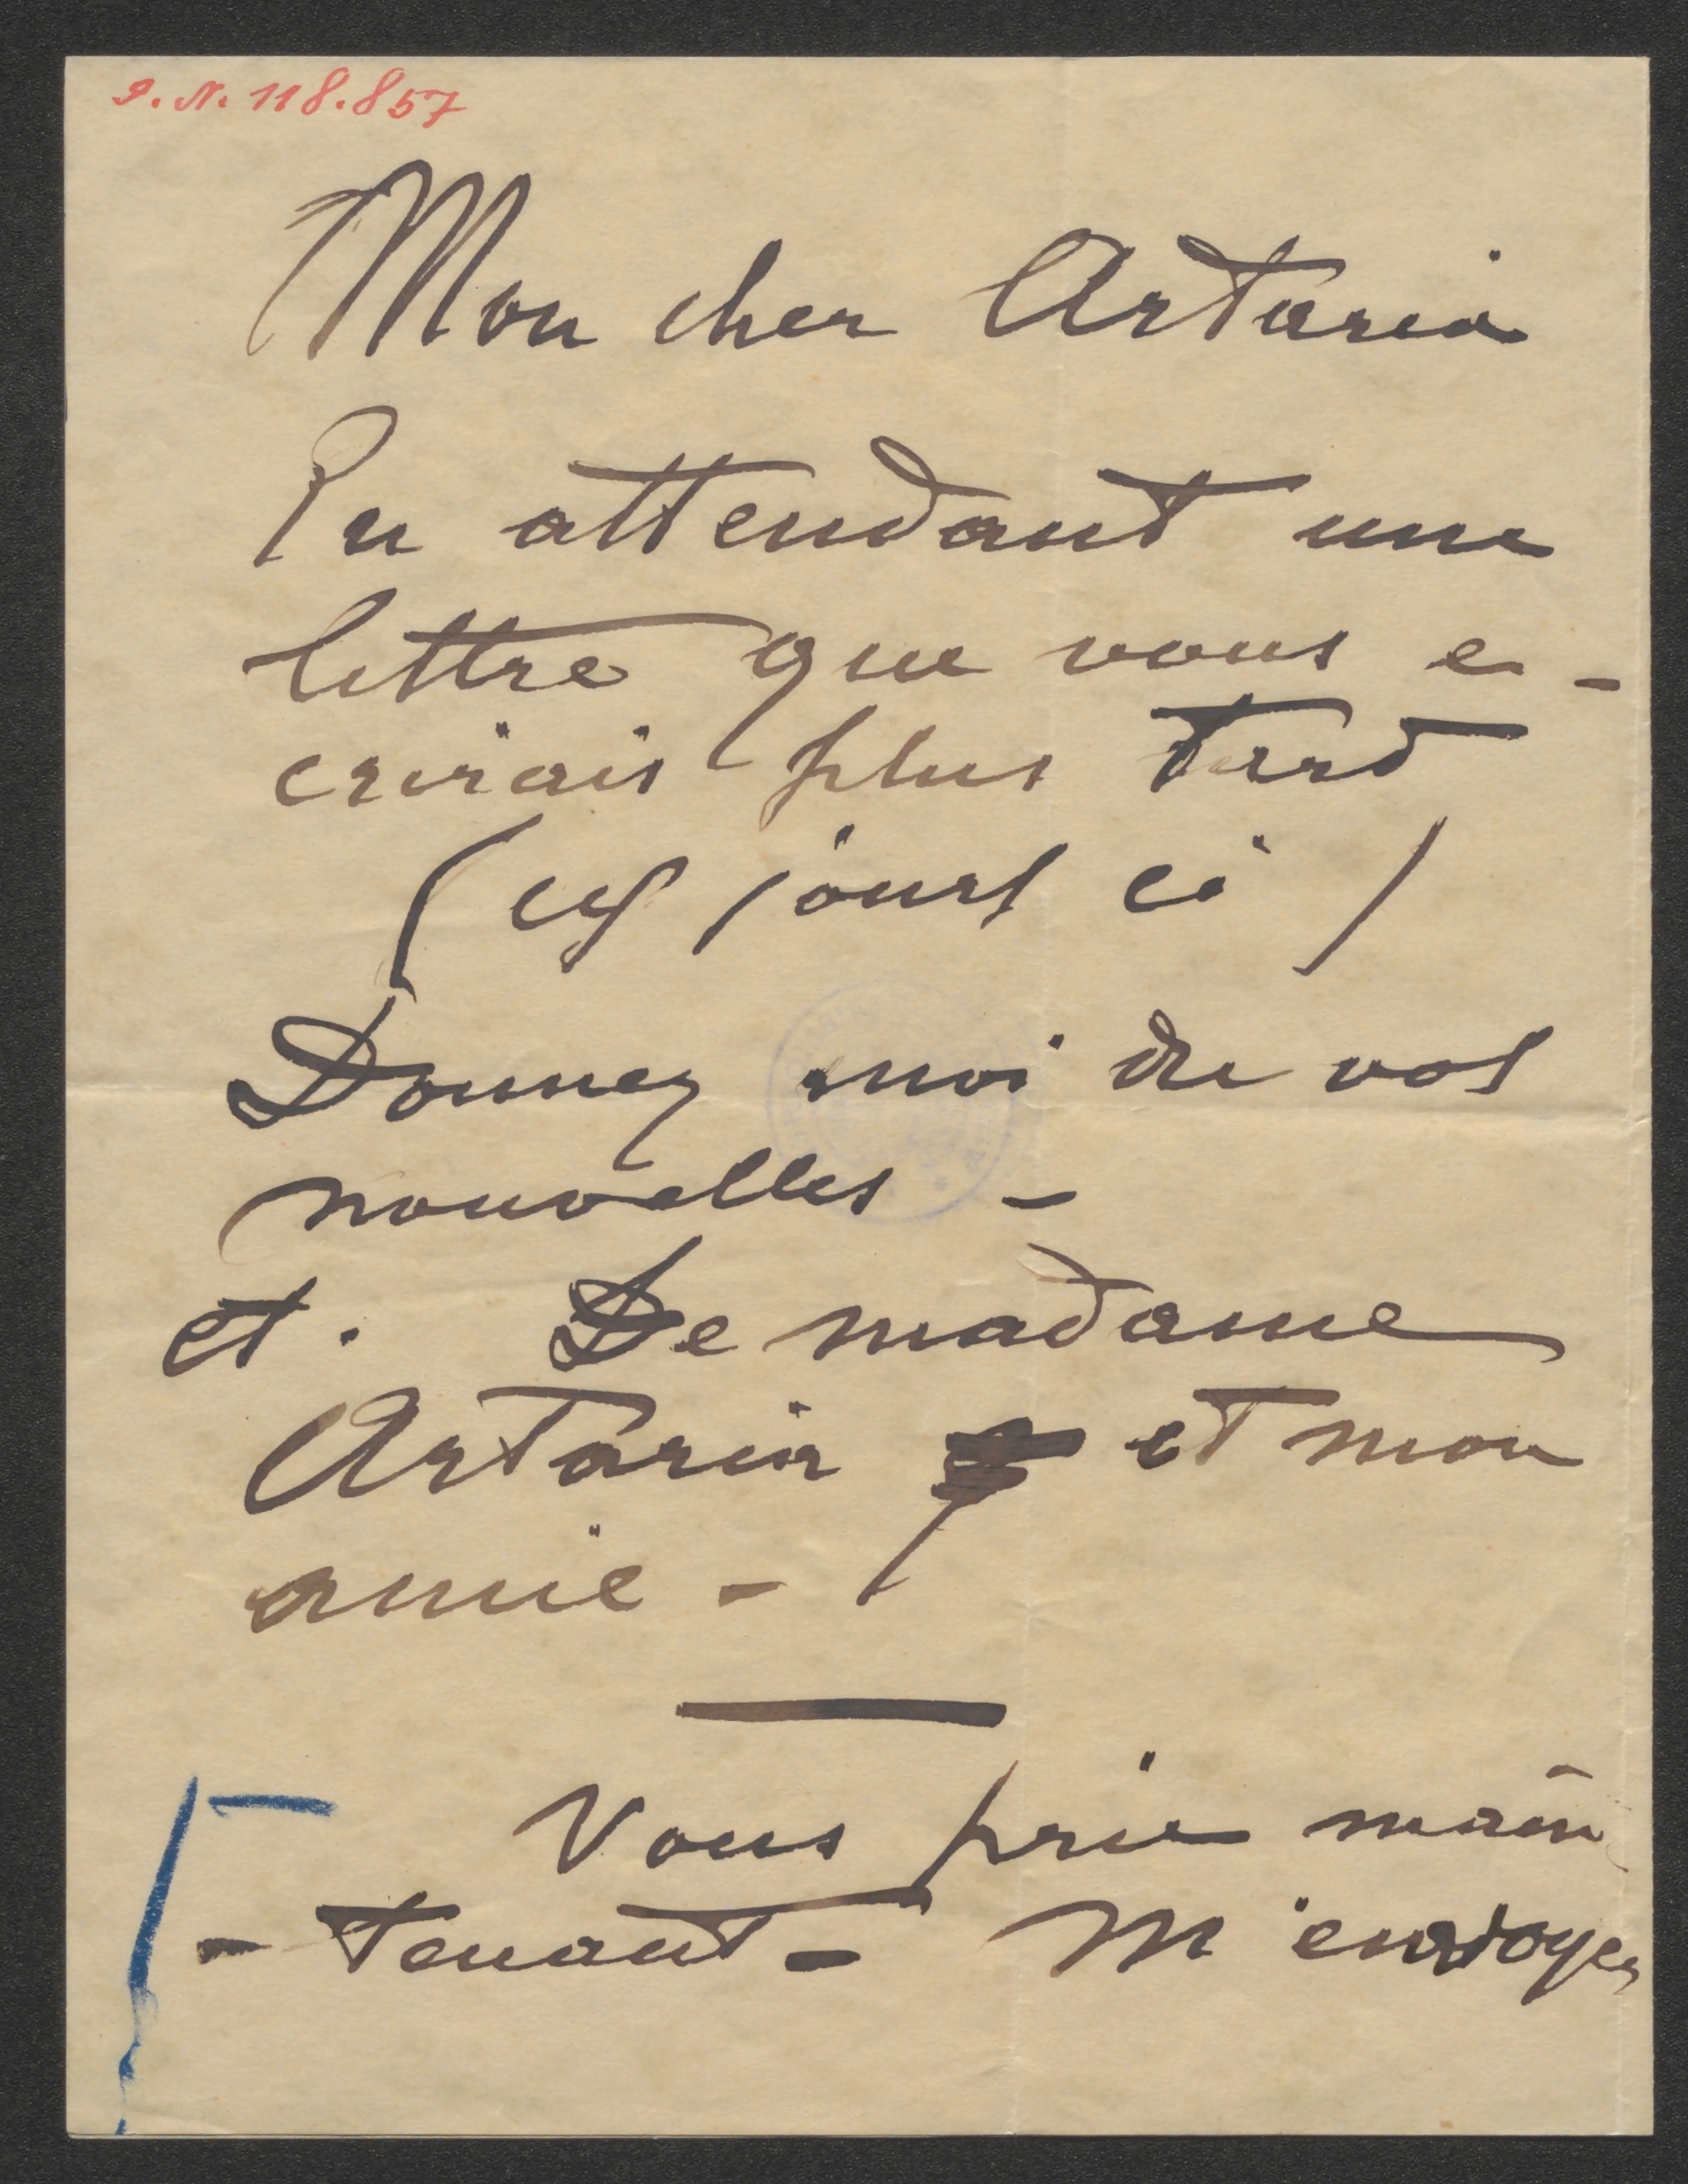 I. N. 118.857
Mon cher Artaria
En attendant une
lettre que vous e-
crirais plus tard
(ces jours ci)
Donnez moi de vos
nouvelles -
et. De madame
Artaria et mon
amie -
Vous prie main
- tenant - m'envoyer